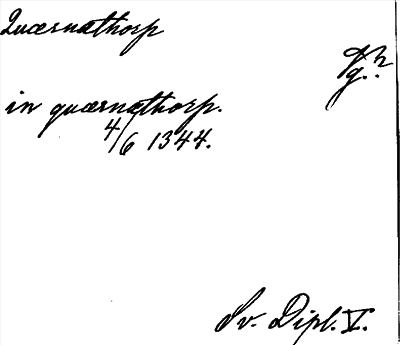 Quærnæthorp
in quærnæthorp.
4/6 1344.
Sv. Dipl. V.